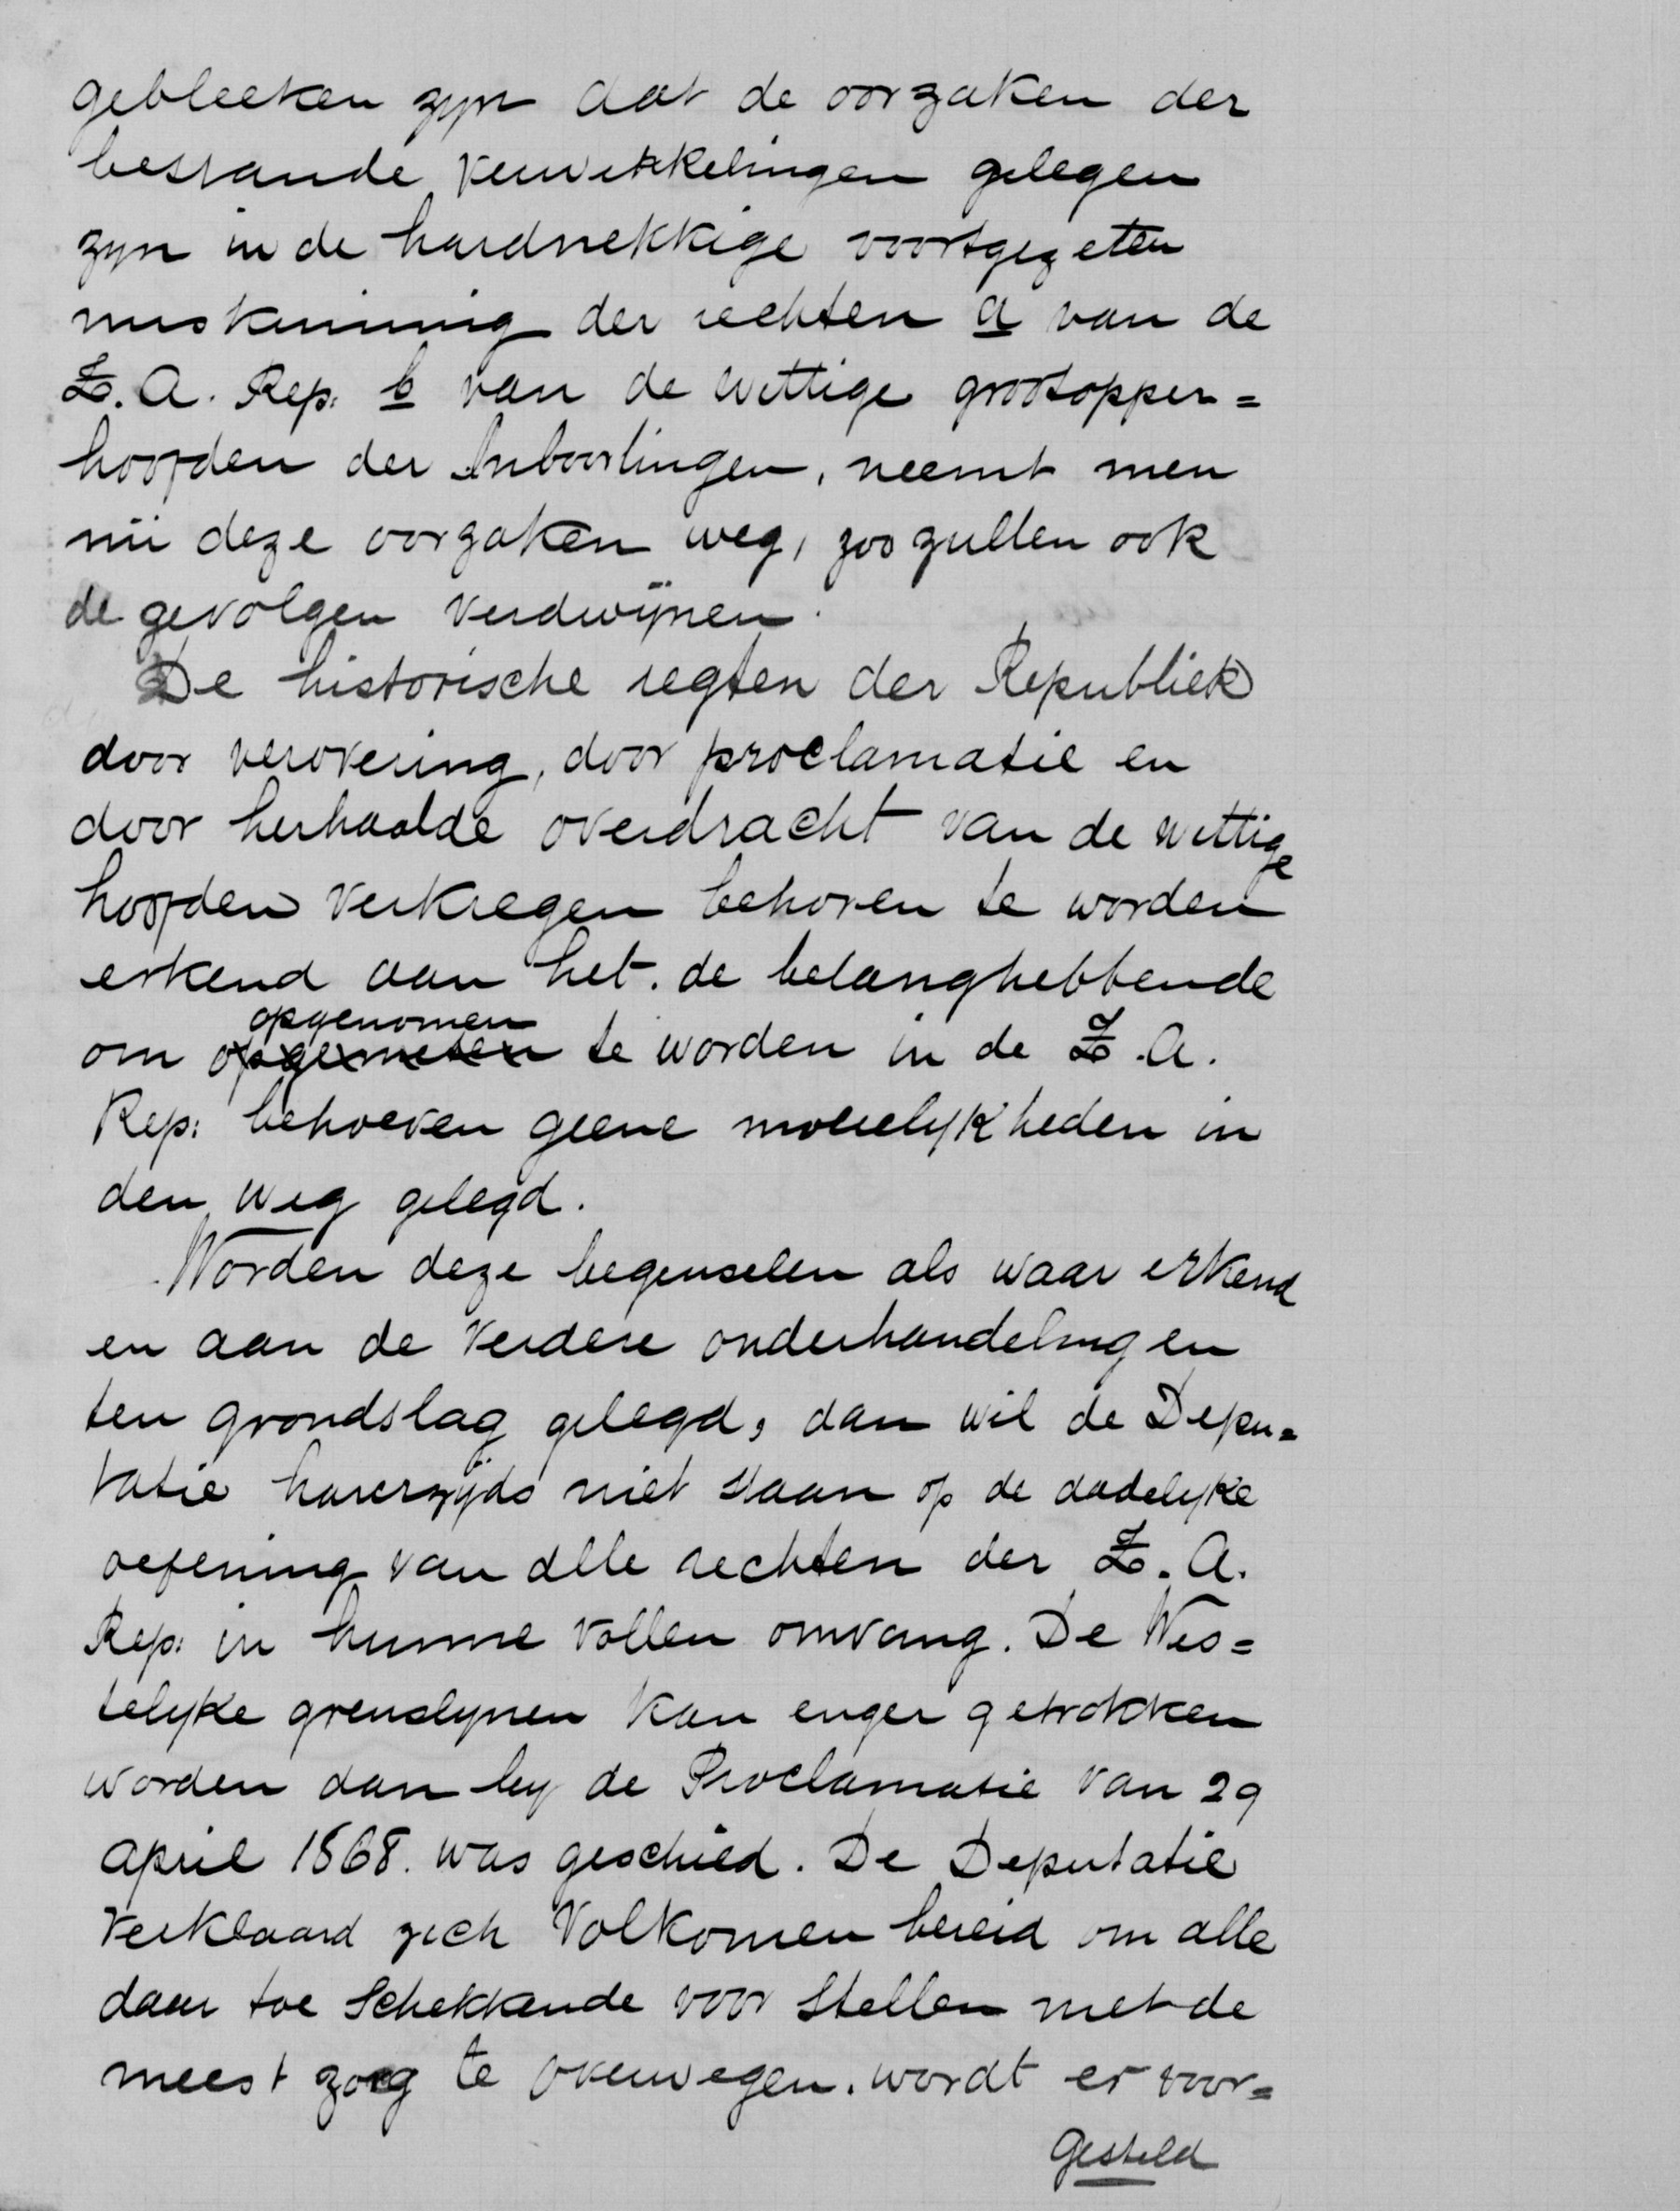 gebleeken zyn dat de oorzaken der
bestande verwikkelingen gelegen
zyn in de hardnekkige voortgezeten
miskenning der rechten a van de
Z. A. Rep. b van de wettige grootopper=
hoofden der Inboorlingen, neemt men
nu deze oorzaken weg, zoo zullen ook
de gevolgen verdwijnen.
De historische regten der Republiek
door verovering, door proclamatie en
door herhaalde overdracht van de wettige
hoofden verkregen behoren te worden
erkend aan het. de belanghebbende
opgenomen
om opgemeten te worden in de Z. A.
Rep: behoeven geene moeielykheden in
den weg gelegd.
Worden deze beginselen als waar erkend
en aan de verdere onderhandelingen
ten grondslag gelegd, dan wil de Depu=
tatie harerzyds niet staan op de dadelyke
oefening van alle rechten der Z. A.
Rep: in hunne vollen omvang. De Wes=
telyke grenslynen kan enger getrokken
worden dan by de Proclamatie van 29
april 1868. was geschied. De Deputatie
verklaard zich volkomen bereid om alle
daar toe Schekkende voor stellen met de
meest zorg te overwegen. wordt er voor=
gesteld